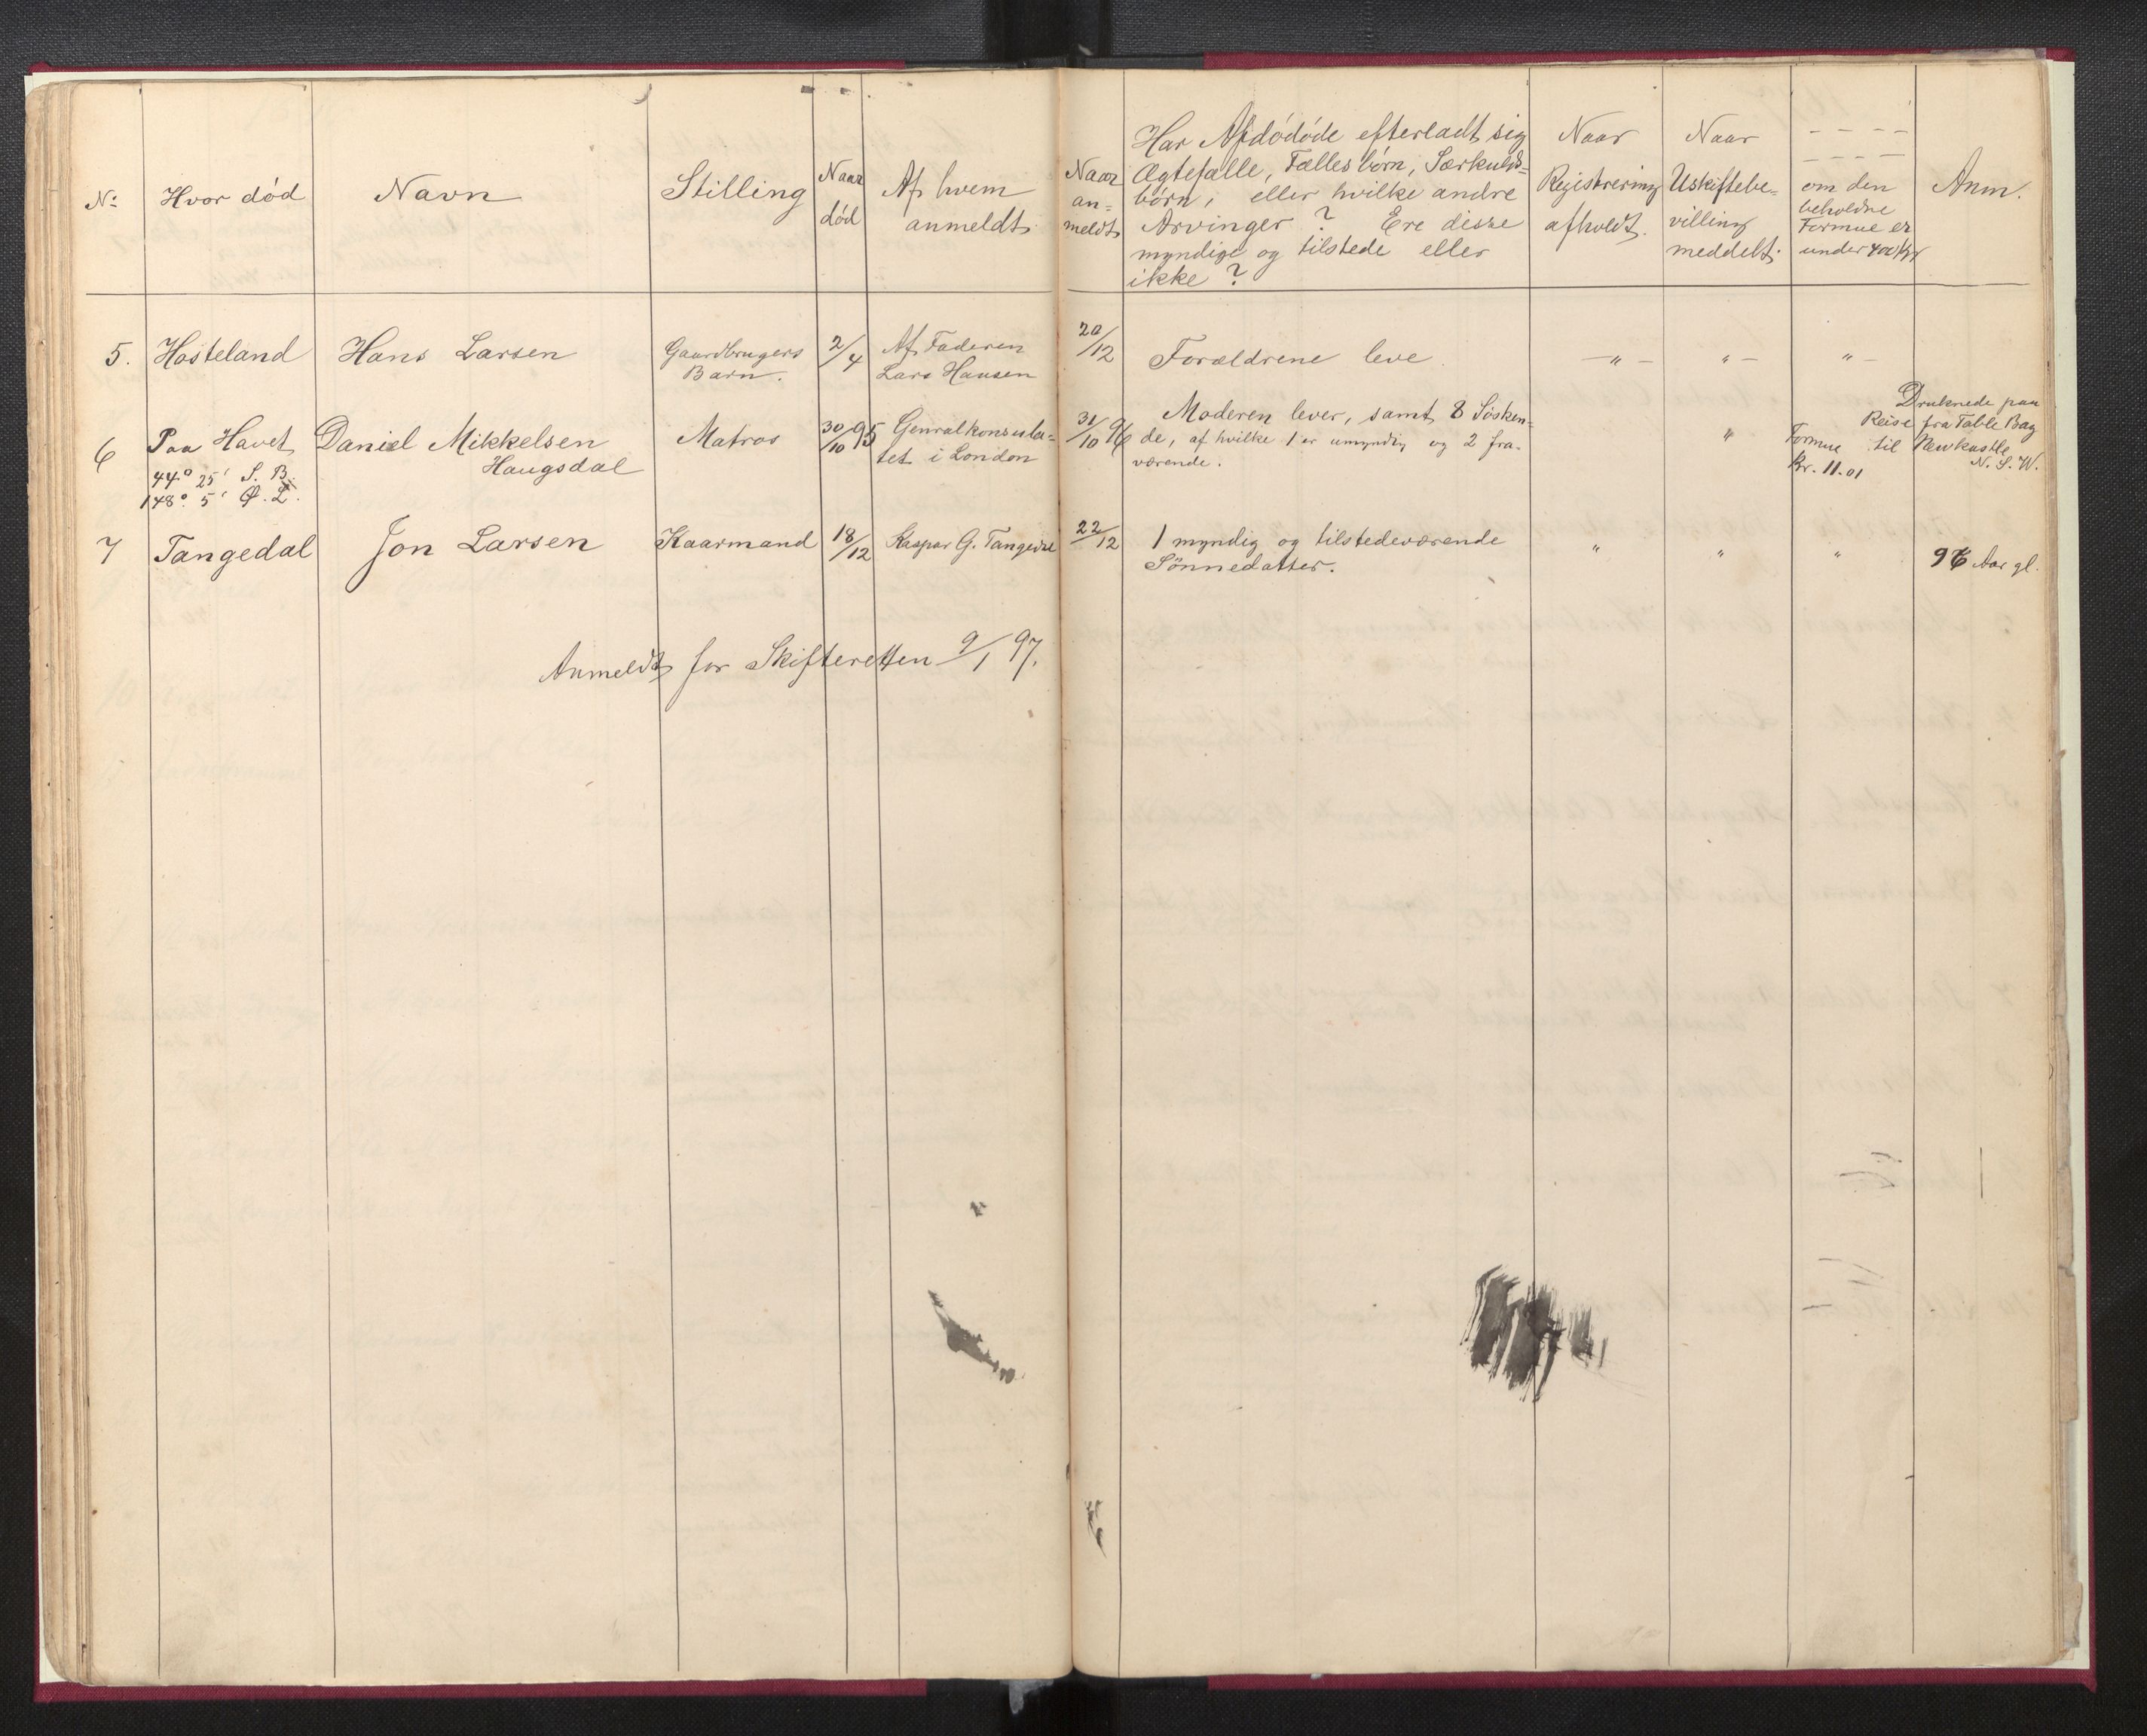 Nº
Hvor död
Navn
Stilling
Naar
död
Af hvem
anmeldt
Naar
an=
meldt
Har Afdödöde efterladt sig
Ægtefælle, Fælles börn, Særkulds=
börn, eller hvilke andre
Arvinger? Ere disse
myndige og tilstede eller
ikke?
Naar
Registrering
afholdt.
Naar
Uskiftebe=
villing
meddelt.
– – – –
– – – –
om den
beholdne
Formue er
under 400 Kr
Anm.
5. Hosteland Hans Larsen Gaardbrugers
Barn. 2/4 Af Faderen
Lars Hansen 20/12 Forældrene leve. –„– „– „–
6 Paa Havet
44° 25' S. B.
148° 5' Ø. L. Daniel Mikkelsen
Haugsdal Matros 30/10 95 Genralkonsula=
tet i London 31/10 96 Moderen lever, samt 8 Sösken=
de, af hvilke 1 er umyndig og 2 fra-
værende. „ Formue
Kr. 11.01 Druknede paa
Reise fra Table Bay
til Newkastle
N. S. W.
7 Tangedal Jon Larsen Kaarmand 18/12 Kaspar G. Tangedal 22/12 1 myndig og tilstedeværende
Sönnedatter. „ „ „ 96 Aar gl.
Anmeldt for Skifteretten 9/1 97.